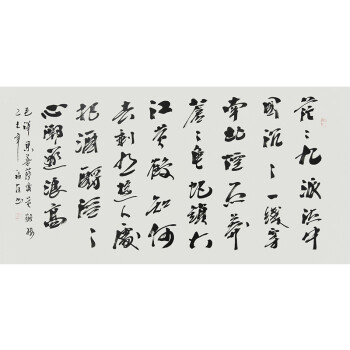 茫〻九派流中
国沉〻一线穿
南北煙雨莽
苍〻龟蛇锁大
江黄鹤知何
去剩有遊人处
把酒酹滔〻
心潮逐浪高
毛泽东菩萨蛮黄鹤楼
乙未年